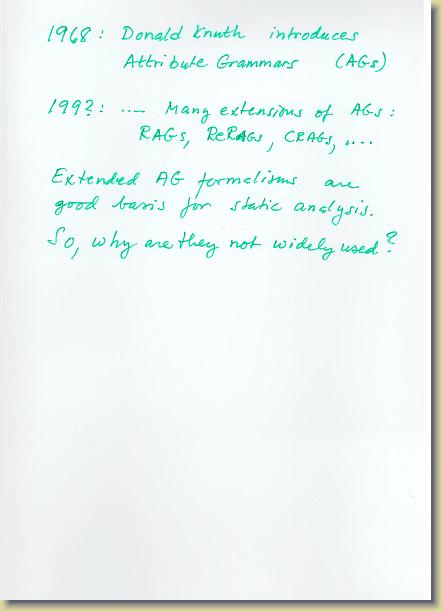 1968: Donald Knuth introduces
Attribute Grammars (AGs)
199?: .... Many extensions of AGs:
RAGs, ReRAGs, CRAGs, ....
Extended AG formalisms are
good basis for static analysis.
So, why are they not widely used?